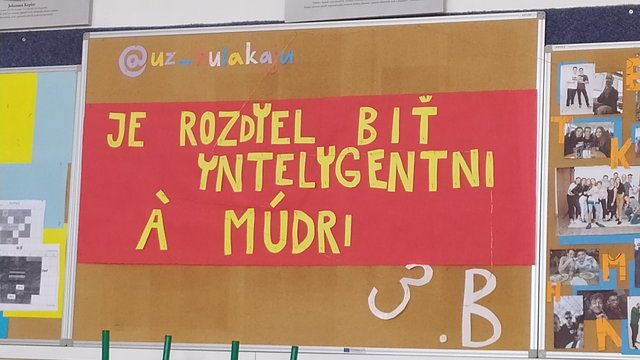 Johannes Kepler
JE ROZDYEL BIŤ
YNTELYGENTNI
À MÚDRI
3.B